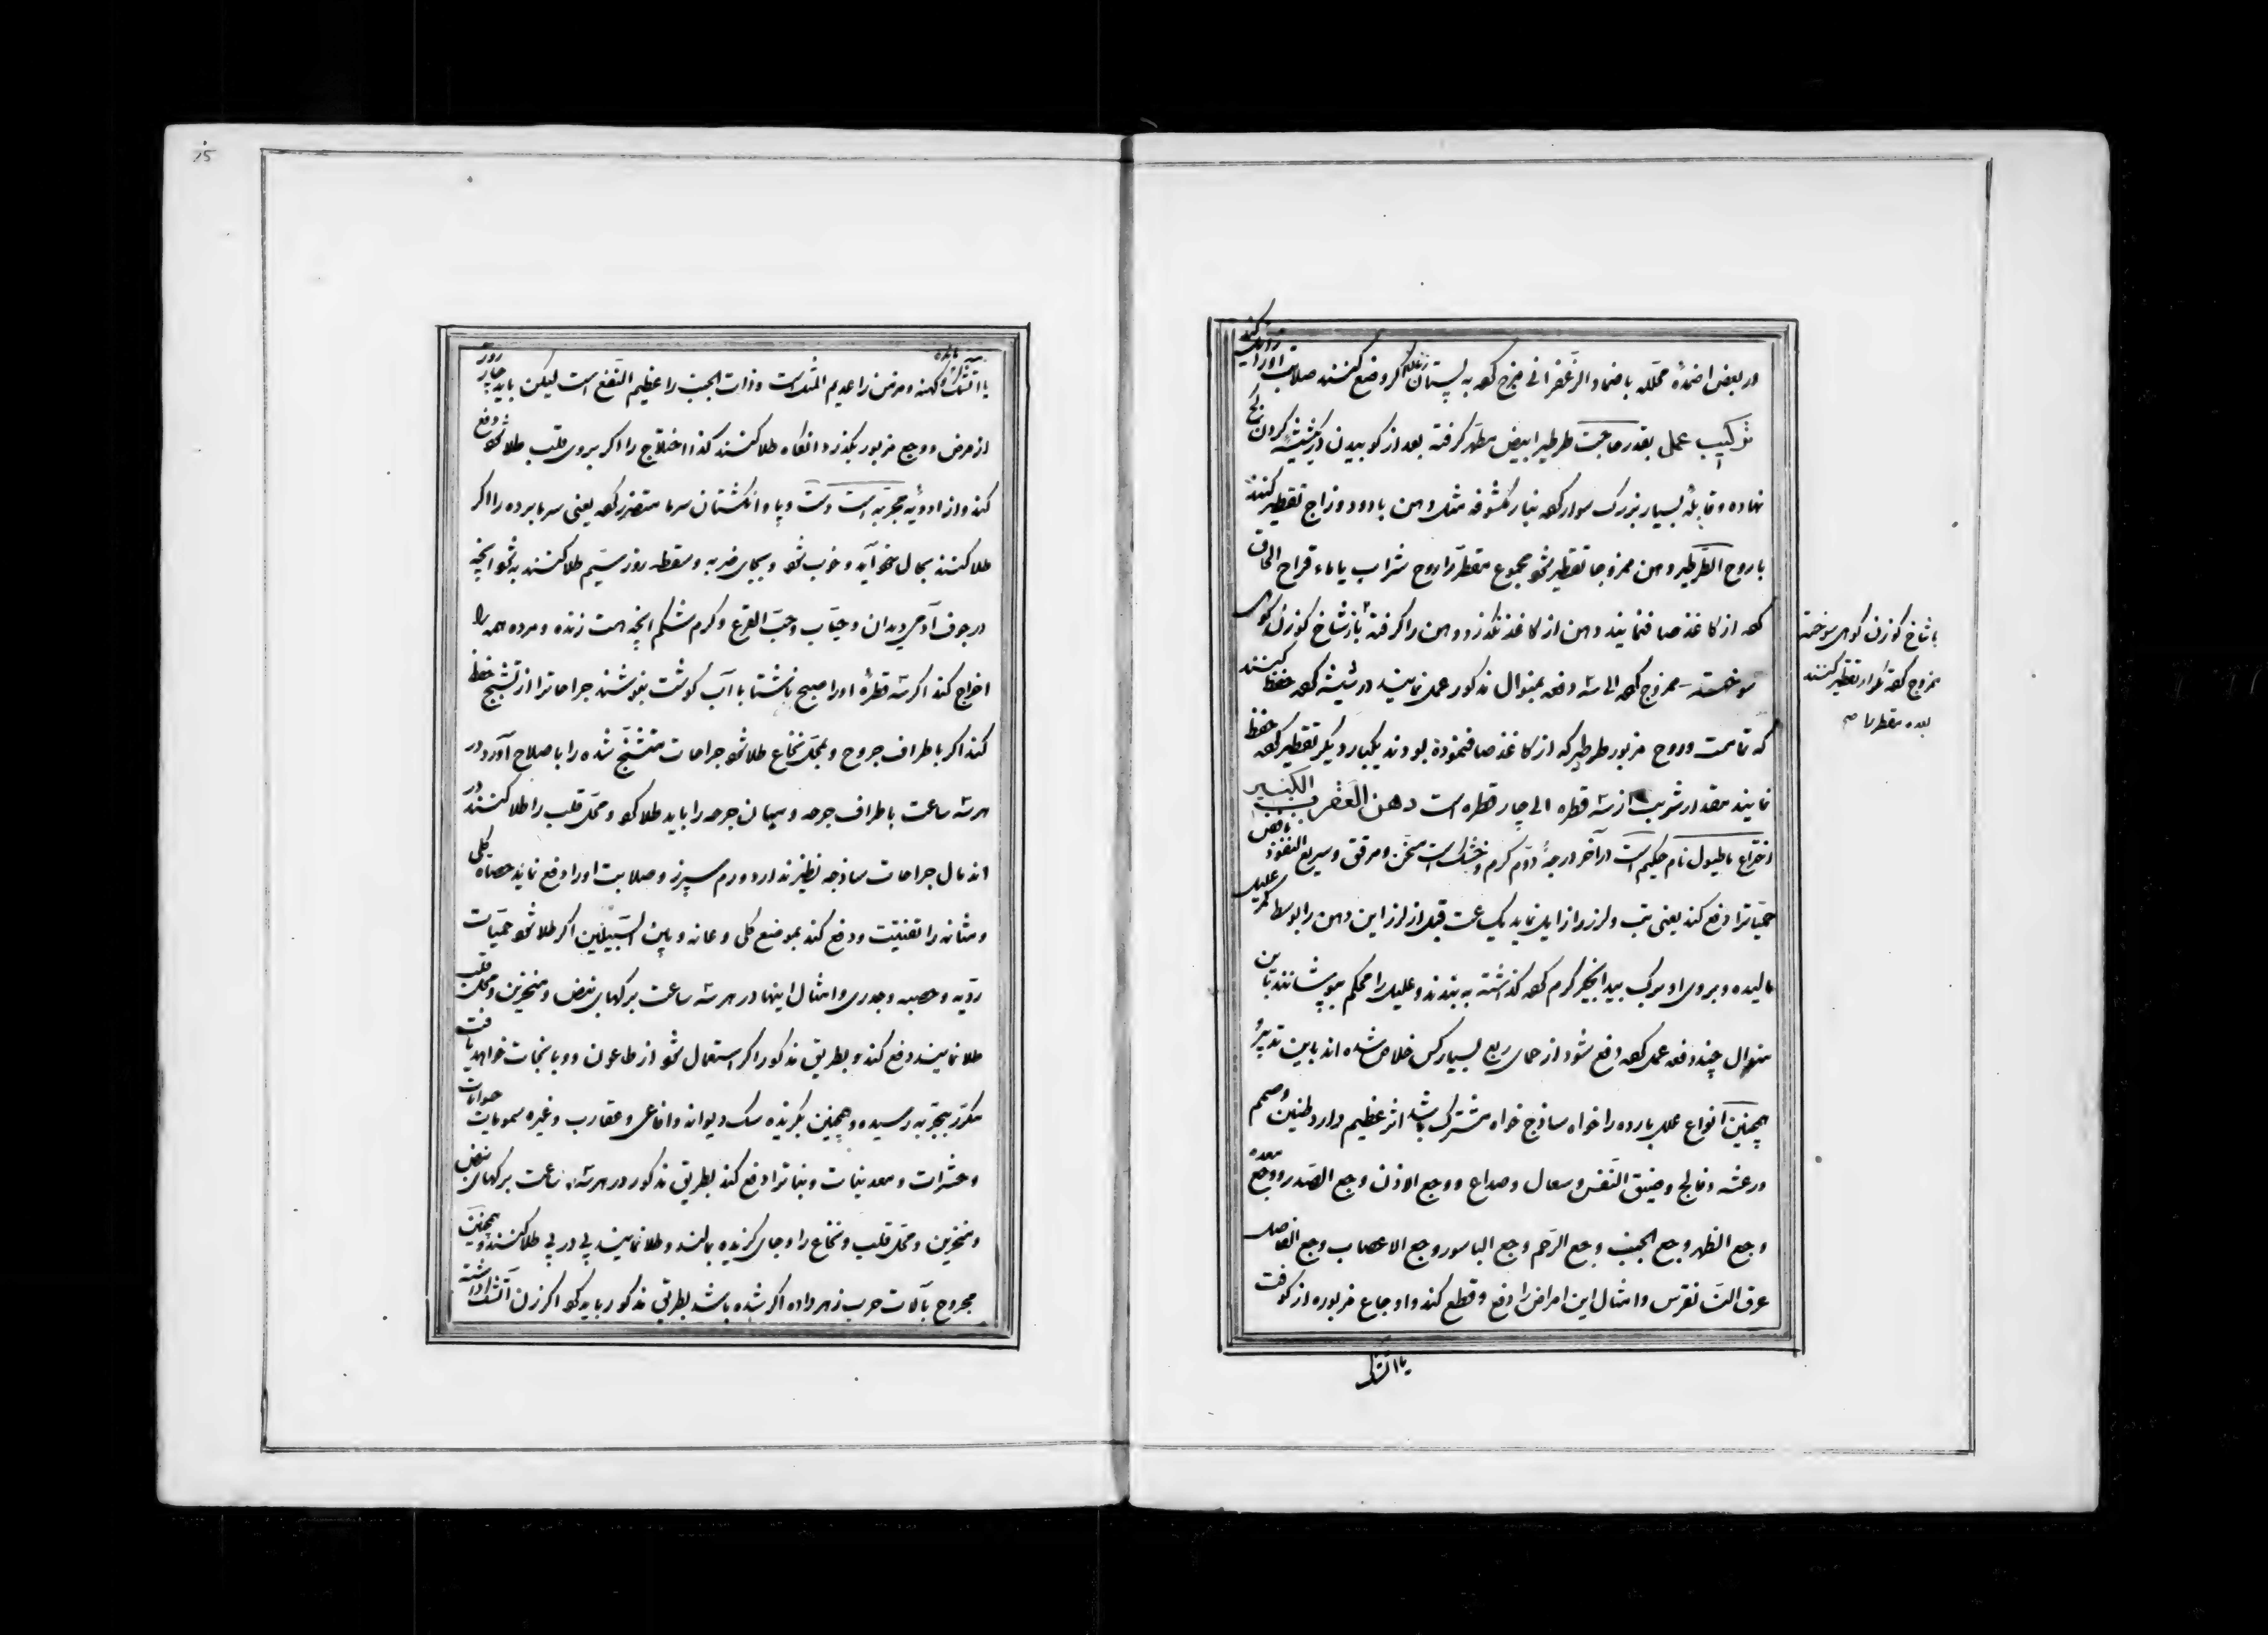 در بعض اضمدهٔ محلله یا ضماد الزعفرانی مزج کرده به پستان زنان اگر وضع کنند صلابت او را زایل کند
ترکیب عملی بقدر حاجت طرطیر ابیض مطهر گرفته بعد از کوبیدن در شیشه گردن کج
نهاده و قابلهٔ بسیار بزرگ سوار کرده بنار مکشوفه مثل دهن بارود و زاج تقطیر کنند
با روح الطرطیر دهن ممزوجا تقطیر شود مجموع مقطر را روح شراب یا ماء قراح الحاق
کرده از کاغذ صاف نمایند دهن از کاغذ نگذرد دهن را گرفته باز شاخ گوزن کوهی
سوخته ممزوج کرده الی سه دفعه بمنوال مذکور عمل نمایند در شیشه کرده حفظ کنند
که تمامست و روح مزبور طرطیر که از کاغذ صاف نموده بودند یکبار دیگر تقطیر کرده حفظ
نمایند مقدار شربت از سه قطره الی چار قطره است دهن العقرب الکبیر
اختراع ماطیول نام حکیم است در آخر درجهٔ دوم گرم و خشک است مسخن و مرقق و سریع النفوذ
حمیاترا دفع کند یعنی تب و لرز را زایل نماید یک ساعت قبل از لرز این دهن را بوسط کمر علیل
مالیده و بروی او برگ بید انجیر گرم کرده گذاشته به بندند و علیل را محکم بپوشانند باین
منوال چند دفعه عمل کرده دفع شود از حمای ربع بسیار کس خلاص شده اند باین تدبیر و
همچنین انواع علل بارده را خواه ساذج خواه مشترک باشد اثر عظیم دارد طنین و صمم
و رعشه و فالج و ضیق النفس و سعال و صداع و وجع الاذن وجع الصدر و وجع معده
وجع الظهر وجع الجنب وجع الرحم وجع الباسور وجع الاعصاب وجع المفاصل
عرق النسا نقرس و امثال این امراض را دفع و قطع کند و اوجاع مزبوره از کوفت
یا آتشک
با شاخ گوزن کوهی سوخته
ممزوج کرده تکرار تقطیر کنند
بعده مقطر را صح
25
یا آتشک کهنه و مزمن را عدیم المثل است و ذات الجنب را عظیم النفع است لیکن باید چار روز
از مرض و وجع مزبور بگذرد آنگاه طلا کنند کذا اختلاج را اگر بروی قلب طلا شود دفع
کند و از ادویهٔ مجربه است دست و پا و انگشتان سرما متضرر کرده یعنی سرما برده را اگر
طلا کنند بحال خود آید و خوب شود و بجای ضربه و سقطه روز سیم طلا کنند به شود آنچه
در جوف آدمی دیدان و حیات وحب القرع و کرم شکم آنچه هست زنده و مرده همه را
اخراج کند اگر سه قطرهٔ او را صبح ناشتا با آب گوشت بنوشند جراحاترا از تشنج حفظ
کند اگر باطراف جروح و بمحل نخاع طلا شود جراحات متشنج شده را باصلاح آورد در
هر سه ساعت باطراف جرحه و میان جرحه را باید طلا کرد و محل قلب را طلا کنند در
اندمال جراحات ساذجه نظیر ندارد ورم سپرز و صلابت او را دفع نماید حصاه کلی
و مثانه را تفتیت و دفع کند بموضع کلی و عانه و بین السبیلین اگر طلا شود حمیات
ردیه و حصبه و جدری و امثال اینها در هر سه ساعت برگهای نبض و منخرین و محل قلب
طلا نمایند دفع کند و بطریق مذکور اگر استعمال شود از طاعون و وبا نجات خواهد یافت
مکرر بتجربه رسیده و همچنین بگزنده سگ دیوانه و افاعی و عقارب و غیره سمومات حیوانات
و حشرات و معدنیات و نباتاترا دفع کند بطریق مذکور در هر سه ساعت برگهای نبض
و منخرین و محل قلب و نخاع را و جای گزیده بمالند و طلا نمایند پی در پی طلا کنند و همچنین
مجروح بآلات حرب زهر داده اگر شده باشد بطریق مذکور باید کرد اگر زن آتشک داشته